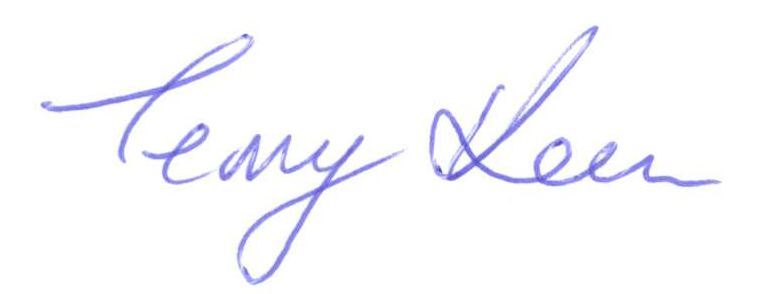 Terry Keen